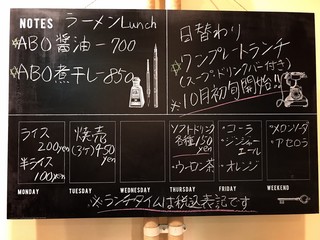 NOTES ラーメンLunch
☆ABO醤油-700
☆ABO煮干し-850
日替わり
☆ワンプレートランチ
(スープ・ドリンクバー付き)
※10月初旬開始!!
ライス
200yen
半ライス
100yen
焼売
(3ヶ)450
yen
ソフトドリンク
各種150
yen
・ウーロン茶
・コーラ
・ジンジャー
エール
・オレンジ
・メロンソーダ
・アセロラ
MONDAY TUESDAY WEDNESDAY THURSDAY FRIDAY WEEKEND
※ランチタイムは税込表記です